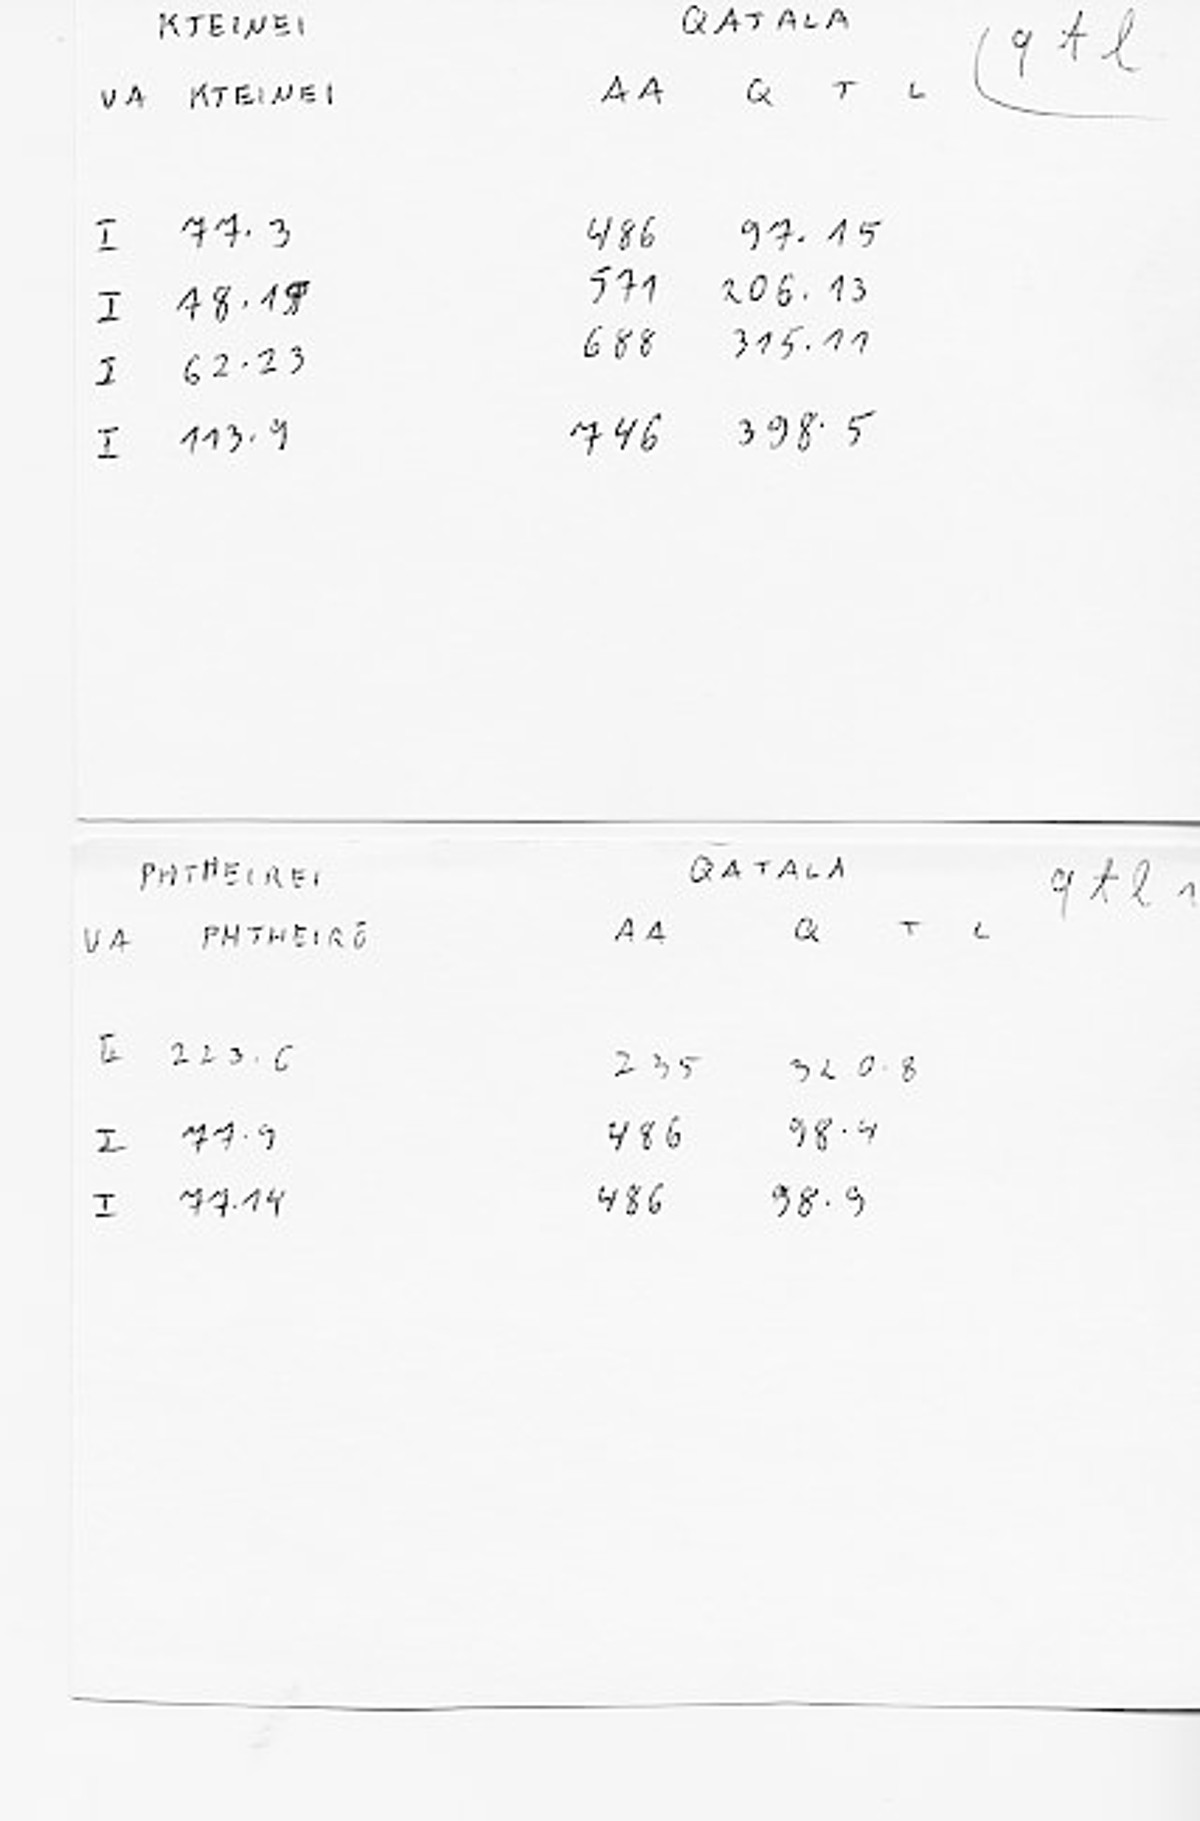 KTEINEI QATALA q t l
VA KTEINEI AA Q T L
I 77.3 486 97.15
I 48.19 571 206.13
I 62.23 688 315.11
I 113.9 746 398.5
PHTHEIREI QATALA q t l 1
VA PHTHEIRŌ AA Q T L
E 223.6 235 320.8
I 77.9 486 98.4
I 77.14 486 98.9